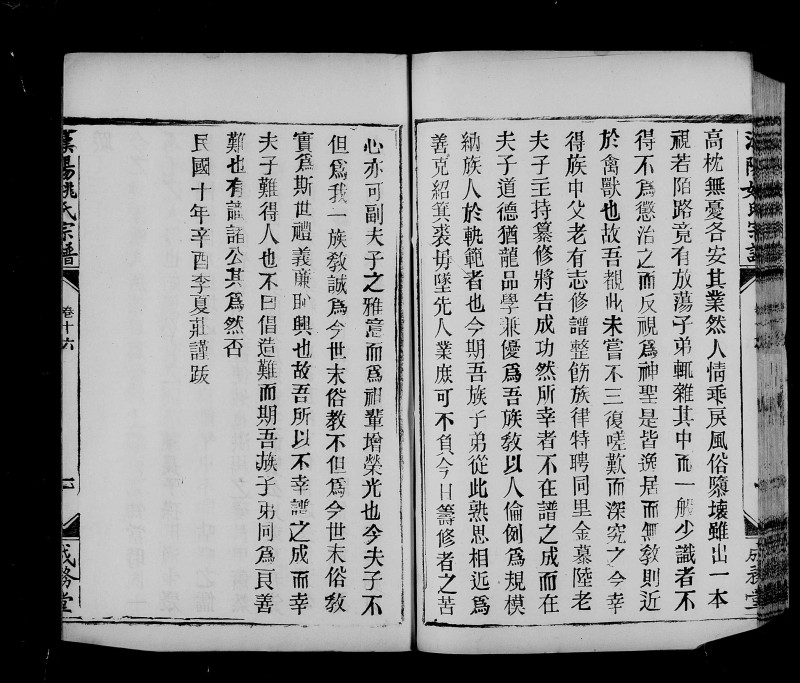 高枕無憂各安其業然人情乖戾風俗隳壞雖出一本
視若陌路竟有放蕩子弟輒雜其中而一般少識者不
得不爲懲治之而反視爲神聖是皆逸居而無敎則近
於禽獸也故吾覩此未嘗不三復嗟歎而深究之今幸
得族中父老有志修譜整飭族律特聘同里金慕陸老
夫子主持纂修將告成功然所幸者不在譜之成而在
夫子道德猶龍品學兼優爲吾族敎以人倫例爲規模
納族人於軌範者也今期吾族子弟從此熟思相远爲
善克紹箕裘毋墜先人業庶可不負今日籌修者之苦
心亦可副夫子之雅意而爲神輩增榮光也今夫子不
但爲我一族敎誠爲今世末俗教不但爲今世末俗敎
實爲斯世禮義廉恥興也故吾所以不幸譜之成而幸
夫子難得人也不曰倡造難而期吾族子弟同爲良善
難也有譜諸公其爲然否
民國十年辛酉季夏莊謹跋
漢陽姚氏宗譜
卷十六
成務堂